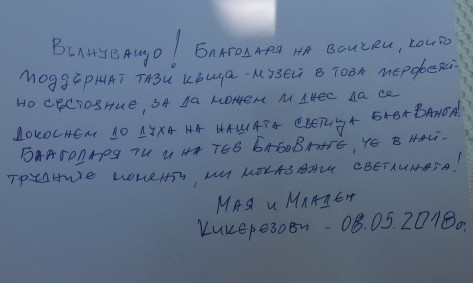 Вълнуващо! Благодаря на всички, които
поддържат тази къща-музей в това перфект-
но състояние, за да можем и днес да се
докоснем до духа на нашата светица баба Ванга.
Благодаря ти и на теб Бабо Ванге, че в най-
трудните моменти, ни показваш светлината!
Мая и Младен
Кикерезови - 08.05.2018г.